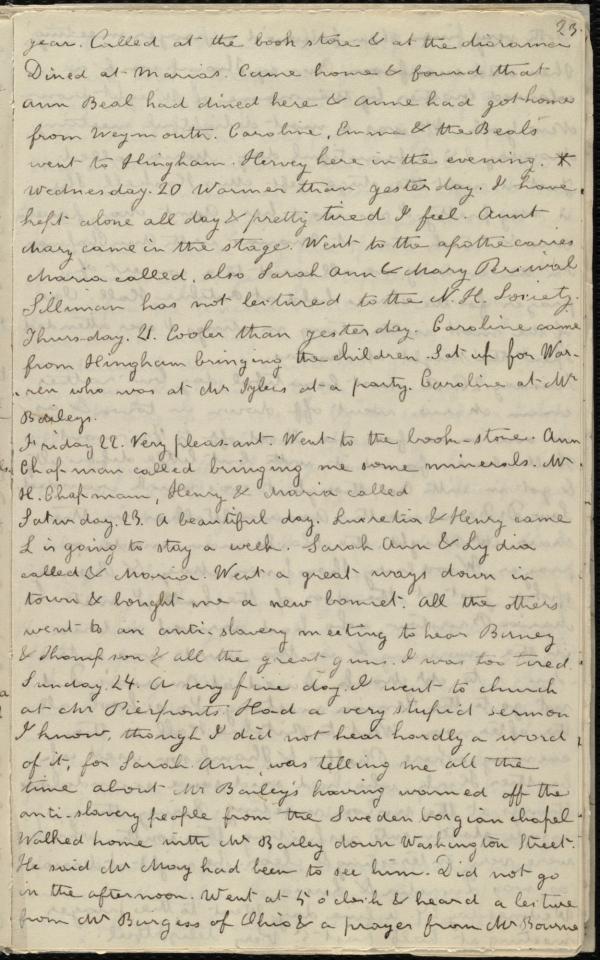 23.
year. Called at the book store & at the diorama
Dined at Marias. Came home & found that
Ann Beal had dined here & Anne had got home
from Weymouth. Caroline, Emma & the Beals
went to Hingham. Hervey here in the evening. *
Wednesday. 20 Warmer than yesterday. I have
kept alone all day & pretty tired I feel. Aunt
Mary came in the stage. Went to the apothecaries
Maria called, also Sarah Ann & Mary Perival
Silliman has not lectured to the N. H. Society.
Thursday. 21. Cooler than yesterday. Caroline came
from Hingham bringing the children. Sat up for War-
ren who was at Mr at a party. Caroline at Mr
Baileys.
Friday 22. Very pleasant. Went to the book-store. Ann
Chapman called bringing me some minerals. Mr
H. Chapman, Henry & Maria called
Saturday. 23. A beautiful day. Lucretia & Henry came
L is going to stay a week. Sarah Ann & Lydia
called & Maria. Went a great ways down in
town & bought me a new bonnet. All the others
went to an anti-slavery meeting to hear Birney
& Thompson & all the great guns. I was too tired.
Sunday. 24. A very fine day. I went to church
at Mr Pierponts. Had a very stupid sermon
I know, though I did not hear hardly a word
of it, for Sarah Ann was telling me all the
time about Mr Bailey's having warned off the
anti-slavery people from the Swedenborgian chapel
Walked home with Mr Bailey down Washington Street.
He said Mr May had been to see him. Did not go
in the afternoon. Went at 5 o'clock & heard a lecture
from Mr Burgess of Ohio & a prayer from Mr Bourne